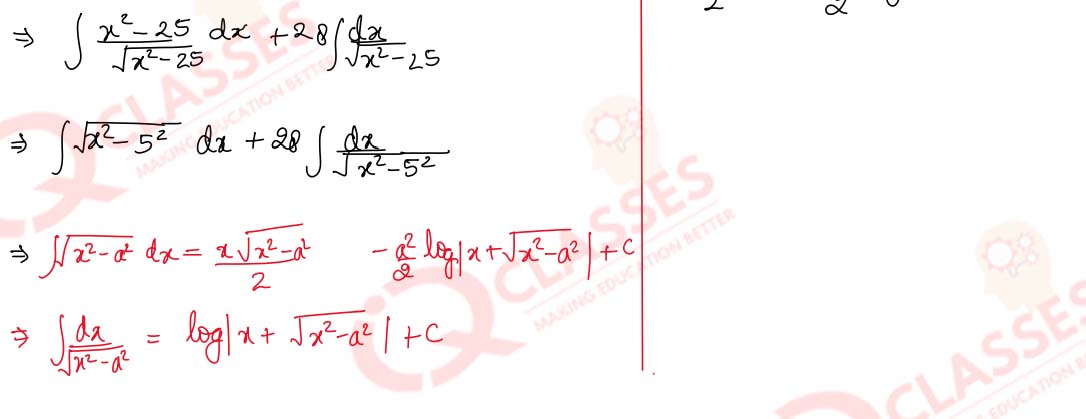 ⇒ ∫ (x²-25)/√(x²-25) dx + 28 ∫ dx/√(x²-25)
⇒ ∫ √(x²-5²) dx + 28 ∫ dx/√(x²-5²)
⇒ ∫ √(x²-a²) dx = x√(x²-a²)/2 - a²/2 log|x+√(x²-a²)| + C
⇒ ∫ dx/√(x²-a²) = log|x+√(x²-a²)| + C
2 2
CLASSES
MAKING EDUCATION BETTER
CLASSES
MAKING EDUCATION BETTER
CLASSES
EDUCATION BETTER